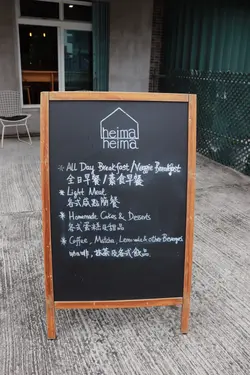 heima
heima
* All Day Breakfast / Veggie Breakfast
全日早餐 / 素食早餐
* Light Meal
各式咸點簡餐
* Homemade Cakes & Desserts
各式蛋糕及甜品
* Coffee, Matcha, Lemonade & other Beverages
咖啡, 抹茶及各式飲品